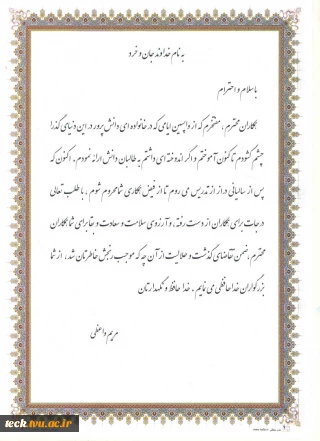 به نام خداوند جان و خرد
با سلام و احترام
همکاران محترم، مفتخرم که از واپسین ایامی که در خانواده ای دانش پرور در این دنیای گذرا
چشم گشودم تا کنون آموختم و اگر اندوخته ای داشتم به طالبان دانش ارائه نمودم. اکنون که
پس از سالیانی دراز از تدریس می روم تا از فیض همکاری شما محروم شوم، با طلب تعالی
درجات برای همکاران از دست رفته، و آرزوی سلامت و سعادت و جا برای شما همکاران
محترم، ضمن تقاضای گذشت و حلالیت از آن چه که موجب رنجش خاطرتان شد، از شما
بزرگواران خداحافظی می نمایم. خدا حافظ و نگهدارتان
مریم واعظی
teck.tvu.ac.ir